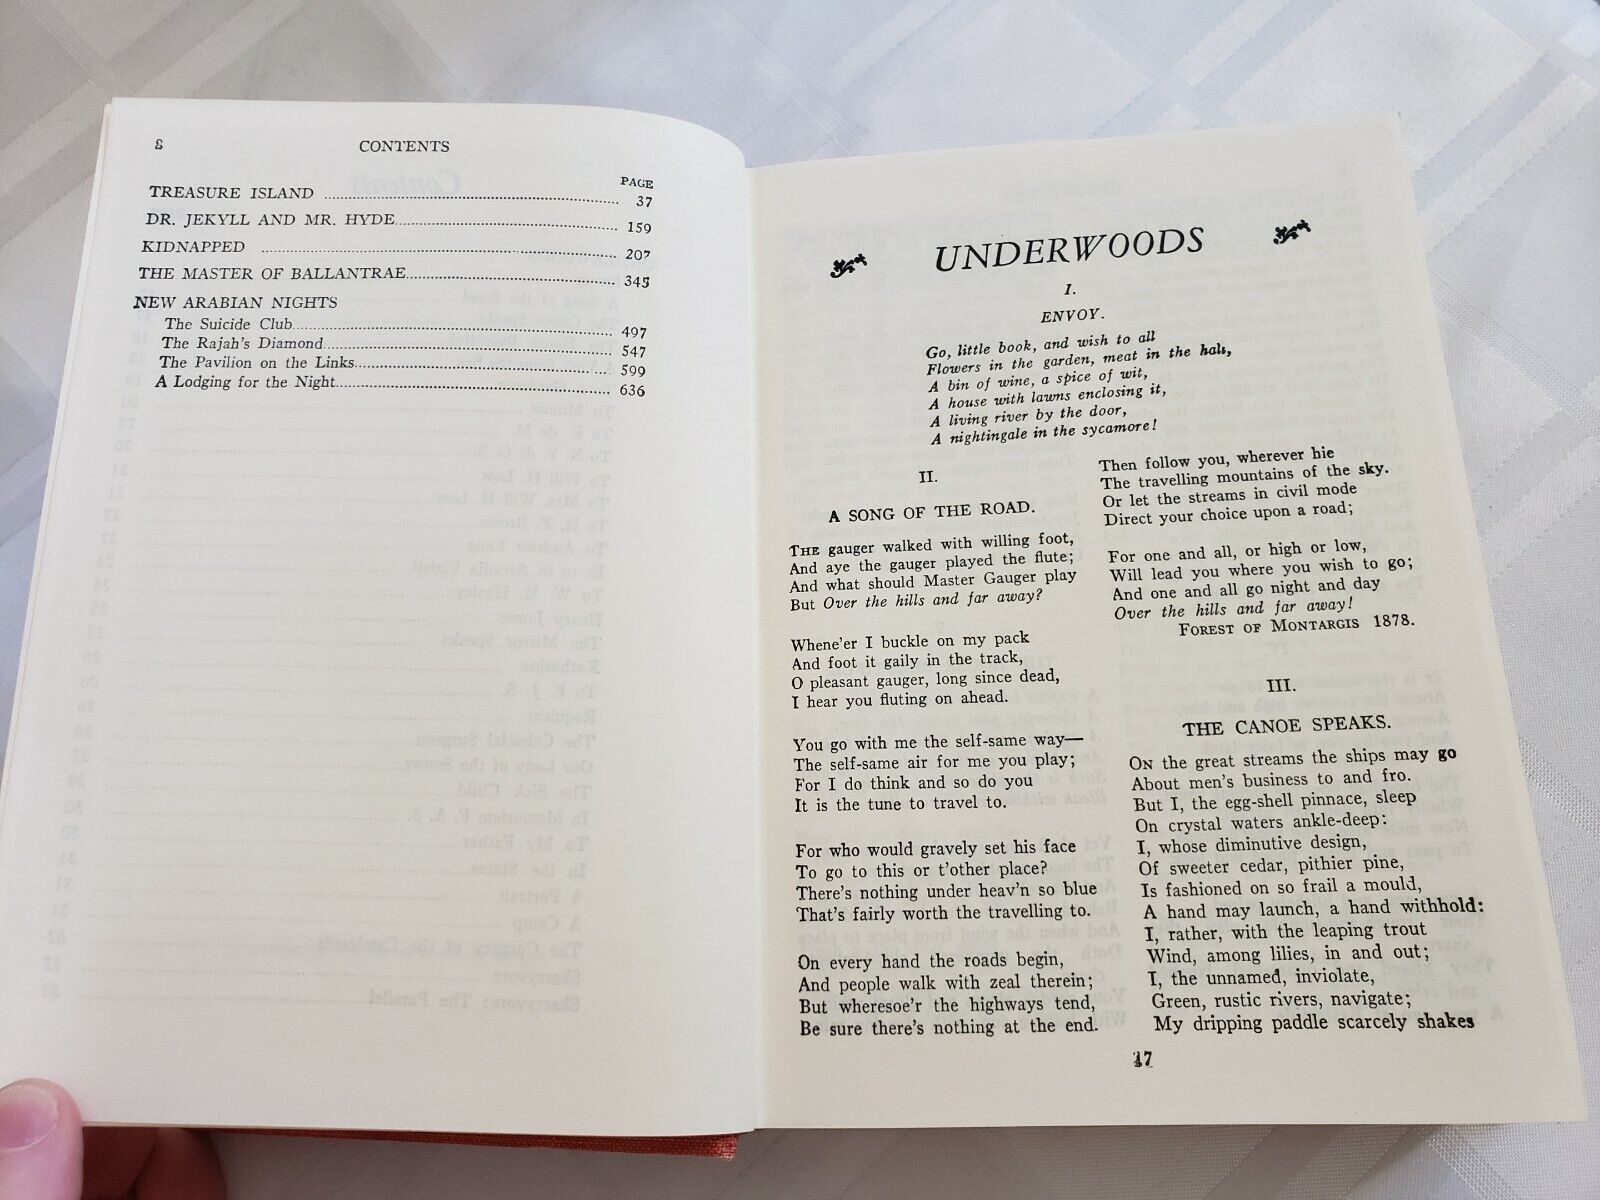 8 CONTENTS
PAGE
TREASURE ISLAND 37
DR. JEKYLL AND MR. HYDE 159
KIDNAPPED 207
THE MASTER OF BALLANTRAE 345
NEW ARABIAN NIGHTS
The Suicide Club 497
The Rajah's Diamond 547
The Pavilion on the Links 599
A Lodging for the Night 636
UNDERWOODS
I.
ENVOY.
Go, little book, and wish to all
Flowers in the garden, meat in the hall,
A bin of wine, a spice of wit,
A house with lawns enclosing it,
A living river by the door,
A nightingale in the sycamore!
II.
A SONG OF THE ROAD.
THE gauger walked with willing foot,
And aye the gauger played the flute;
And what should Master Gauger play
But Over the hills and far away?
Whene'er I buckle on my pack
And foot it gaily in the track,
O pleasant gauger, long since dead,
I hear you fluting on ahead.
You go with me the self-same way—
The self-same air for me you play;
For I do think and so do you
It is the tune to travel to.
For who would gravely set his face
To go to this or t'other place?
There's nothing under heav'n so blue
That's fairly worth the travelling to.
On every hand the roads begin,
And people walk with zeal therein;
But wheresoe'r the highways tend,
Be sure there's nothing at the end.
Then follow you, wherever hie
The travelling mountains of the sky.
Or let the streams in civil mode
Direct your choice upon a road;
For one and all, or high or low,
Will lead you where you wish to go;
And one and all go night and day
Over the hills and far away!
FOREST OF MONTARGIS 1878.
III.
THE CANOE SPEAKS.
ON the great streams the ships may go
About men's business to and fro.
But I, the egg-shell pinnace, sleep
On crystal waters ankle-deep:
I, whose diminutive design,
Of sweeter cedar, pithier pine,
Is fashioned on so frail a mould,
A hand may launch, a hand withhold:
I, rather, with the leaping trout
Wind, among lilies, in and out;
I, the unnamed, inviolate,
Green, rustic rivers, navigate;
My dripping paddle scarcely shakes
17